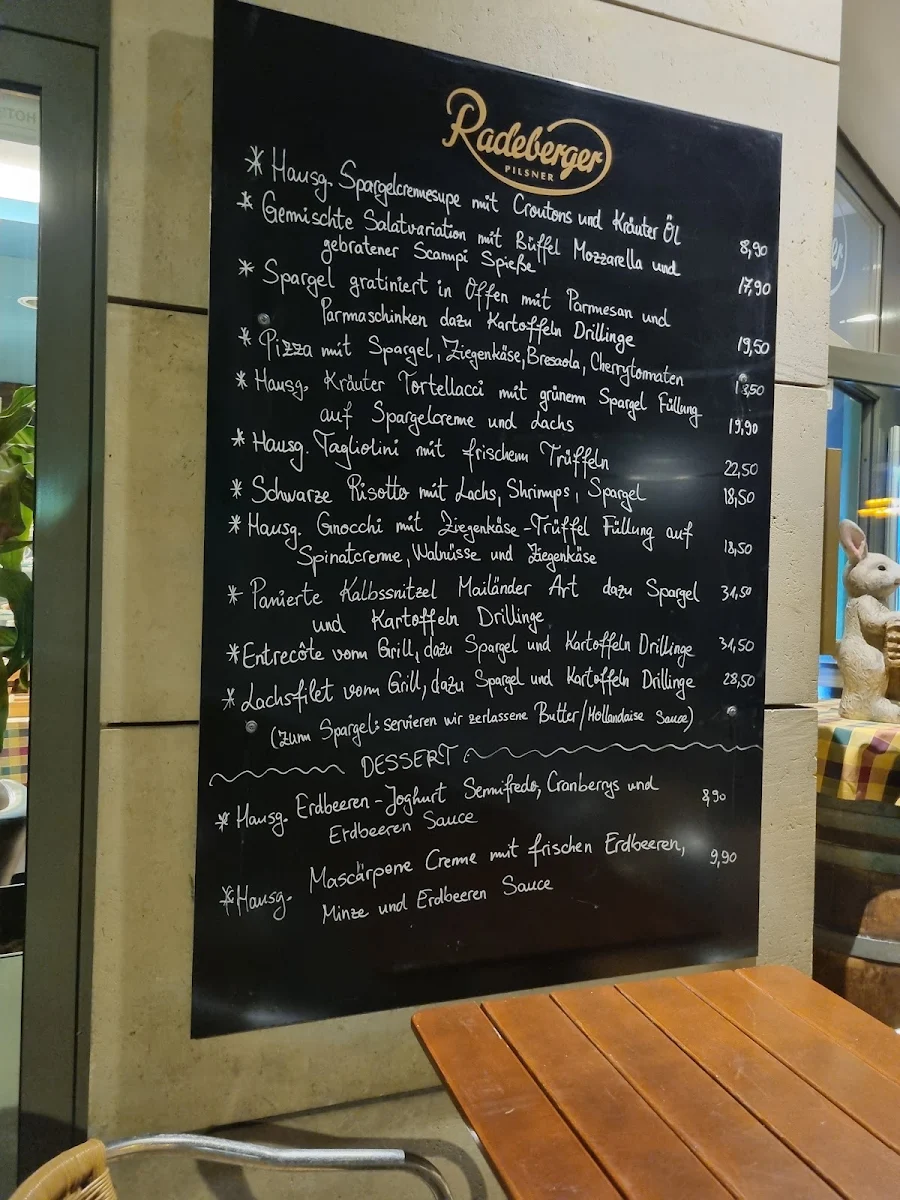 Radeberger
PILSNER
* Hausg. Spargelcremesupe mit Croutons und Kräuter Öl 8,90
* Gemischte Salatvariation mit Büffel Mozzarella und
gebratener Scampi Spieße 17,90
* Spargel gratiniert in Offen mit Parmesan und
Parmaschinken dazu Kartoffeln Drillinge 19,50
* Pizza mit Spargel, Ziegenkäse, Bresaola, Cherrytomaten
* Hausg. Kräuter Tortellacci mit grünem Spargel Füllung
auf Spargelcreme und Lachs 19,90
* Hausg. Tagliolini mit frischem Trüffeln 22,50
* Schwarze Risotto mit Lachs, Shrimps, Spargel 18,50
* Hausg. Gnocchi mit Ziegenkäse-Trüffel Füllung auf
Spinatcreme, Walnüsse und Ziegenkäse 18,50
* Panierte Kalbssnitzel Mailänder Art dazu Spargel 31,50
und Kartoffeln Drillinge
* Entrecôte vom Grill, dazu Spargel und Kartoffeln Drillinge 31,50
* Lachsfilet vom Grill, dazu Spargel und Kartoffeln Drillinge 28,50
(Zum Spargel: servieren wir zerlassene Butter/Hollandaise Sauce)
DESSERT
* Hausg. Erdbeeren-Joghurt Semifredo, Cranberrys und 8,90
Erdbeeren Sauce
* Hausg. Mascarpone Creme mit frischen Erdbeeren, 9,90
Minze und Erdbeeren Sauce